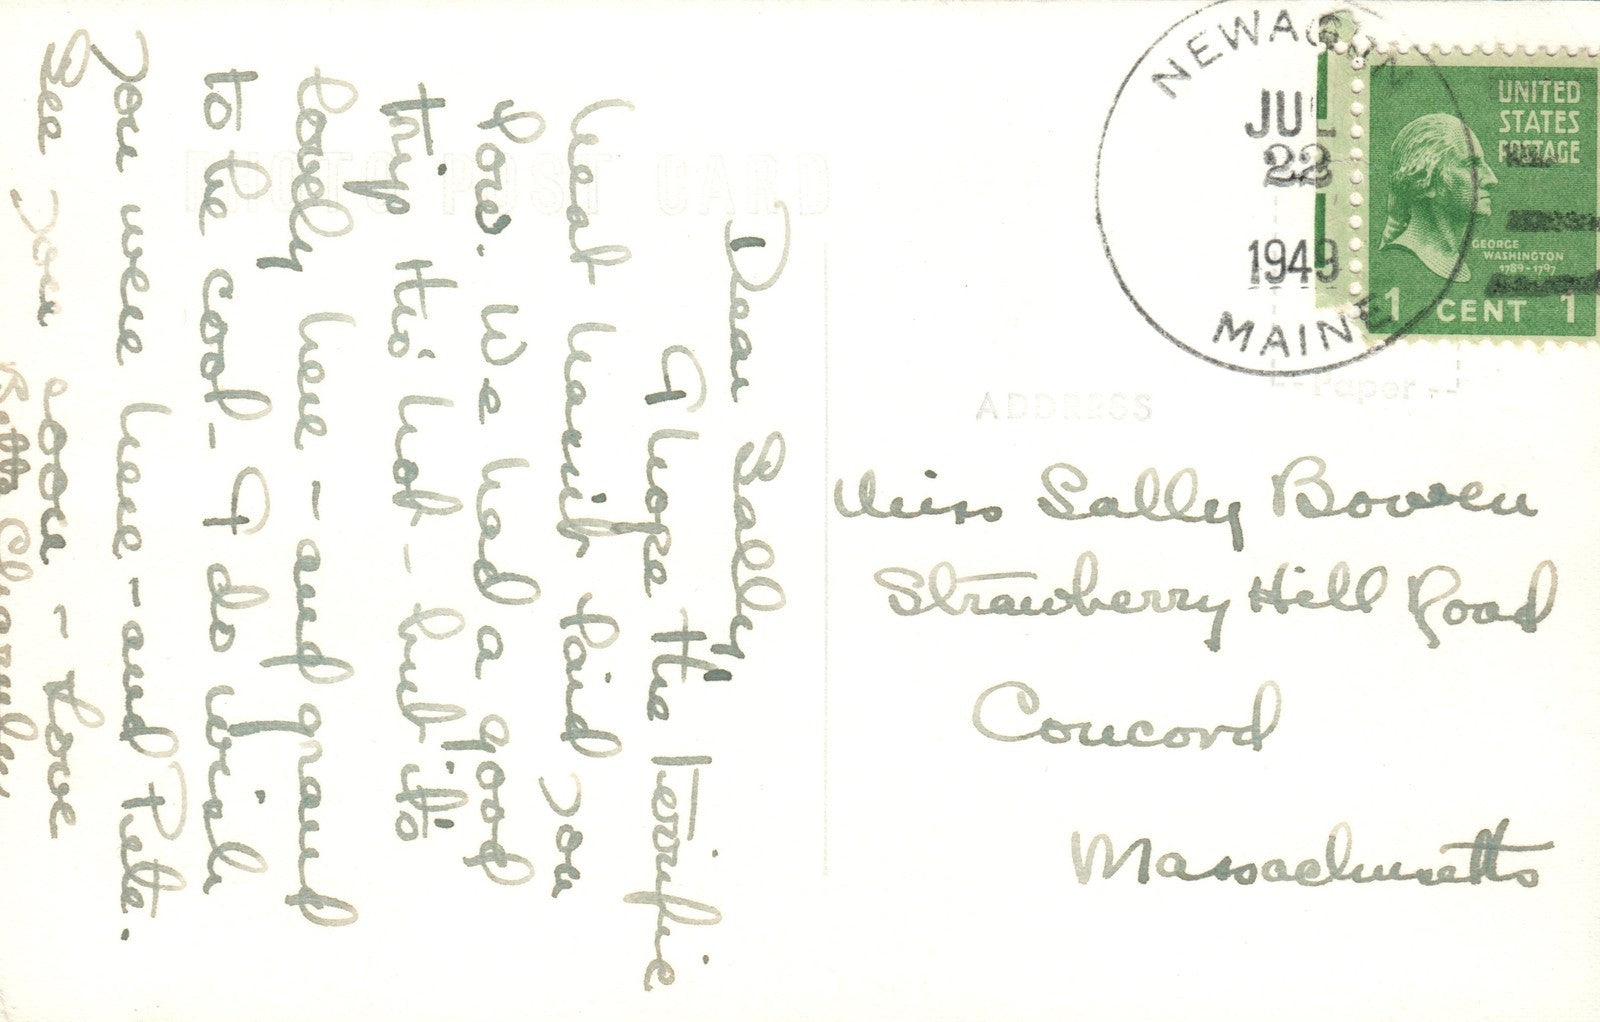 PHOTO POST CARD
Dear Sally
I hope this terrific
heat hasn't laid you
low. We had a good
trip tho' hot - but it's
lovely here - and grand
to be cool - I do wish
you were here - and Pete.
See you soon - Love
Betty
NEWAGEN
JUL
22
1949
MAINE
UNITED
STATES
POSTAGE
GEORGE
WASHINGTON
1789-1797
1 CENT 1
Paper
ADDRESS
Miss Sally Bowen
Strawberry Hill Road
Concord
Massachusetts